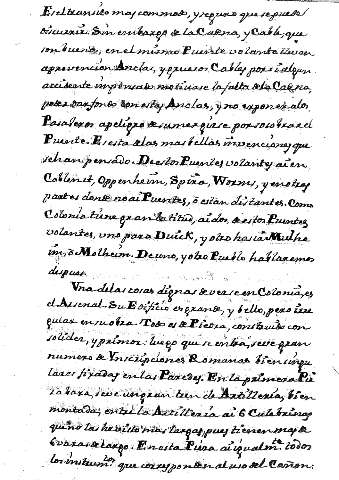 Es el transito mas commodo, y seguro que se puede
discurrir. Sin embargo de la Cadena, y Cable, que
son buenos, en el mismo Puente volante llevan
a prevencion Anclas, y gruesos Cables por si algun
accidente impensado motivase la falta de la Cadena,
poder dar fondo con estas Anclas, y no exponer a los
Pasageros a peligro de sumergirse, por zozobrar el
Puente. Es esta de las mas bellas invenciones que
se han pensado. De estos Puentes volantes ai en
Coblentz, Oppenheim, Spira, Worms, y en otras
partes donde no ai Puentes, ò estan distantes. Como
Colonia tiene gran latitud, ai dos de estos Puentes
volantes, uno para Duick, y otro hacia Mulhe
im, ò Molheim. De uno, y otro Pueblo hablaremos
despues.
Una de las cosas dignas de verse en Colonia, es
el Arsenal. Su Edificio es grande, y bello, pero irre
gular en su obra. Todo es de Piedra, construido con
solidez, y primor: luego que se entra, se ve gran
numero de Ynscripciones Romanas bien singu
lares fixadas en las Paredes. En la primera Pie
za baxa, se ve un gran tren de Artilleria, bien
montada; entre la Artilleria ai 6 Culebrinas
que no las he visto mas largas, pues tienen mas de
6 varas de largo. En esta Pieza ai igualm.te todos
los instrum.tos que corresponden al uso del Cañon: